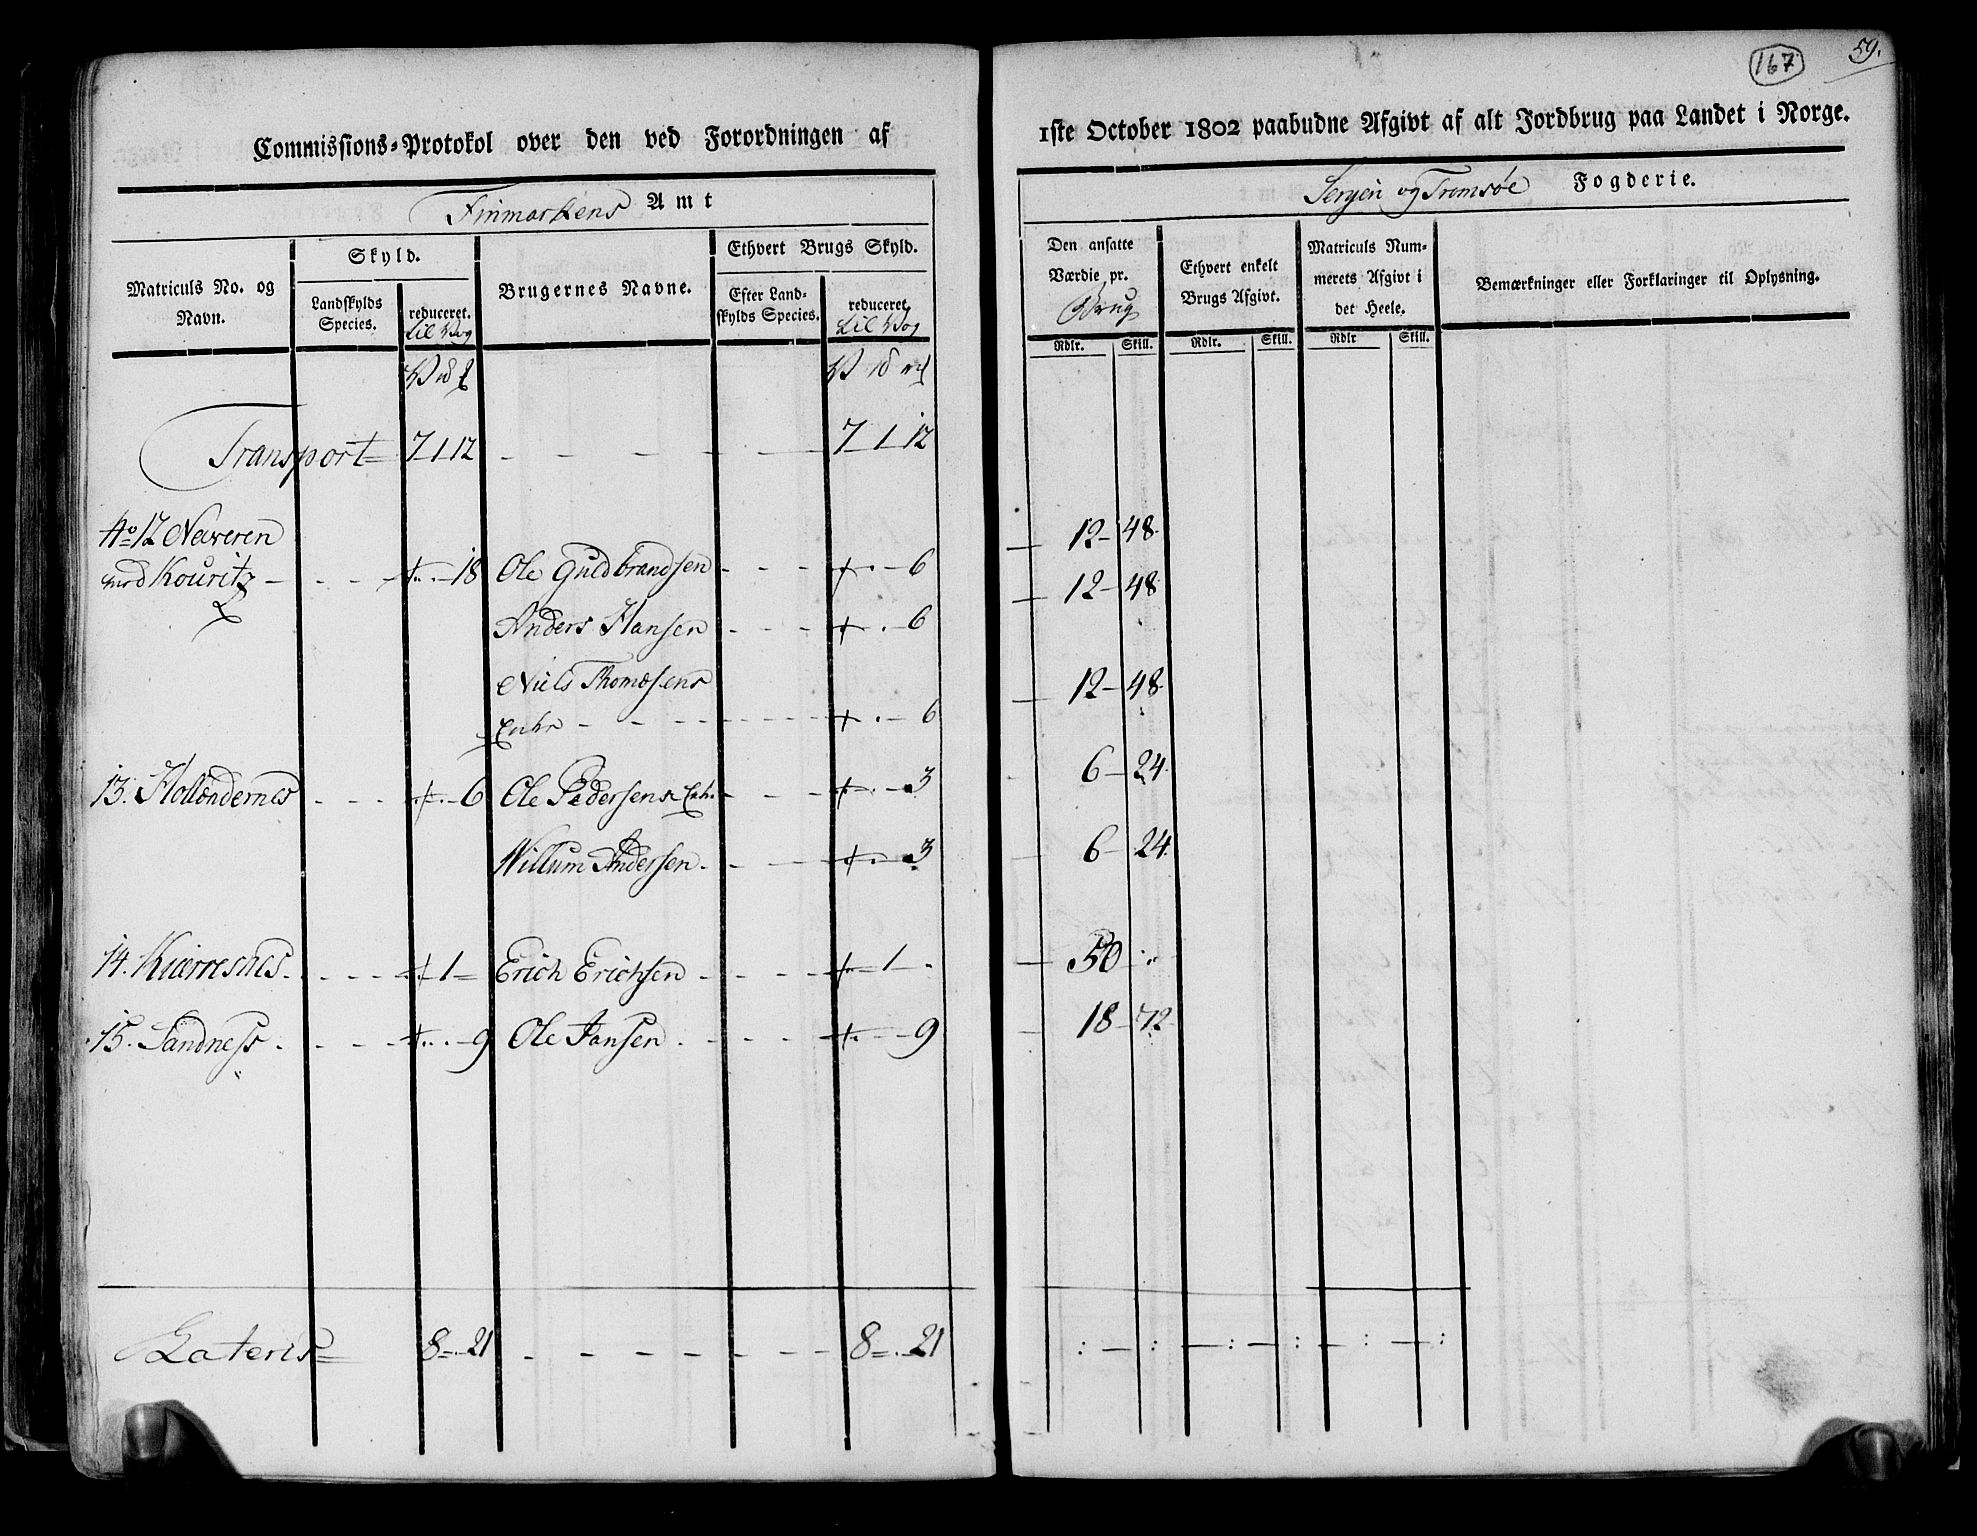 167
59.
Commissions-Protokol over den ved Forordningen af
1ste October 1802 paabudne Afgivt af alt Jordbrug paa Landet i Norge.
Finmarkens Amt
Senjen og Tromsøe Fogderie.
Matriculs No. og Navn.
Skyld.
Landskylds Species.
reduceret. til Vog
Brugernes Navne.
Ethvert Brugs Skyld.
Efter Landskylds Species.
reduceret. til Vog
Den ansatte Værdie pr. Brug
Rdlr. Skill.
Ethvert enkelt Brugs Afgivt.
Rdlr. Skill.
Matriculs Nummerets Afgivt i det Heele.
Rdlr Skill.
Bemærkninger eller Forklaringer til Oplysning.
Transport 7 1 12 - - - - 7 1 12
No 12 Neweren
med Kouritz - - - 18 Ole Guldbrandsen - - - 6 12 - 48
Anders Hansen - - - 6 12 - 48
Niels Thomæsens
Enke - - - 6 12 - 48
13. Hollænderness - - - 6 Ole Pedersens Enke - - - 3 6 - 24
Willum Andersen - - - 3 6 - 24
14. Kierresnes - - - 1 Erich Erichsen - - - 1 50
15. Sandness - - - 9 Ole Jansen - - - 9 18 - 72
Lateris 8 21 - - - - 8 21